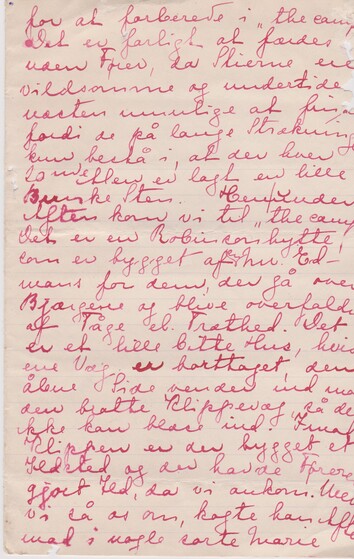 for at forberede i "the camp
Det er farligt at færdes
uden Fører, da Stierne ere
vildsomme og undertiden
næsten umulige at fin
fordi de på lange Strækning
kun bestå i, at der hver
20 er lagt en lille
Bunke Sten. Henunder
Aften kom vi til "the camp
Det er en Robinsonhytte,
som er bygget af Mr. Ed-
mans for dem, der gå over
Bjærgene og blive overfaldt
af Tåge el. Træthed. Det
er et lille bitte Hus, hvis
ene Væg er borttaget, den
åbne Side vender ind mo
den bratte Klippevæg, så de
ikke kan blæse ind. I mod
Klippen er der bygget et
Ildsted og der havde Føreren
gjort Ild, da vi ankom. Me
vi så os om, kogte han Afte
mad i nogle sorte